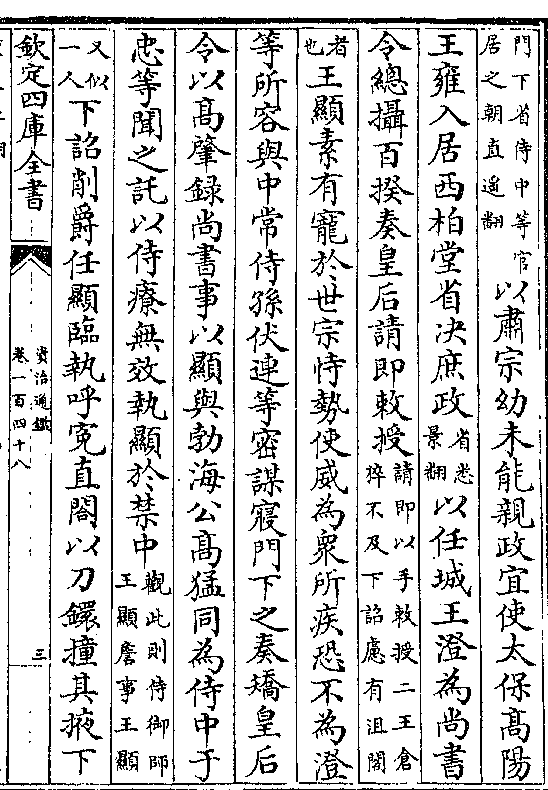 門下省侍中等官
居之朝直遥翻
以肅宗幼未能親政宜使太保髙陽
王雍入居西柏堂省决庶政
省悉
景翻
以任城王澄為尚書
令總攝百揆奏皇后請即敕授
請即以手敕授二王倉
猝不及下詔慮有沮閣
者
也
王顯素有寵於世宗恃勢使威為衆所疾恐不為澄
等所容與中常侍孫伏連等密謀寢門下之奏矯皇后
令以髙肇録尚書事以顯與勃海公髙猛同為侍中于
忠等聞之託以侍療無效執顯於禁中
觀此則侍御師
王顯詹事王顯
又似
一人
下詔削爵任顯臨執呼寃直閤以刀鐶撞其掖下
欽定四庫全書
資治通鑑
卷一百四十八
三